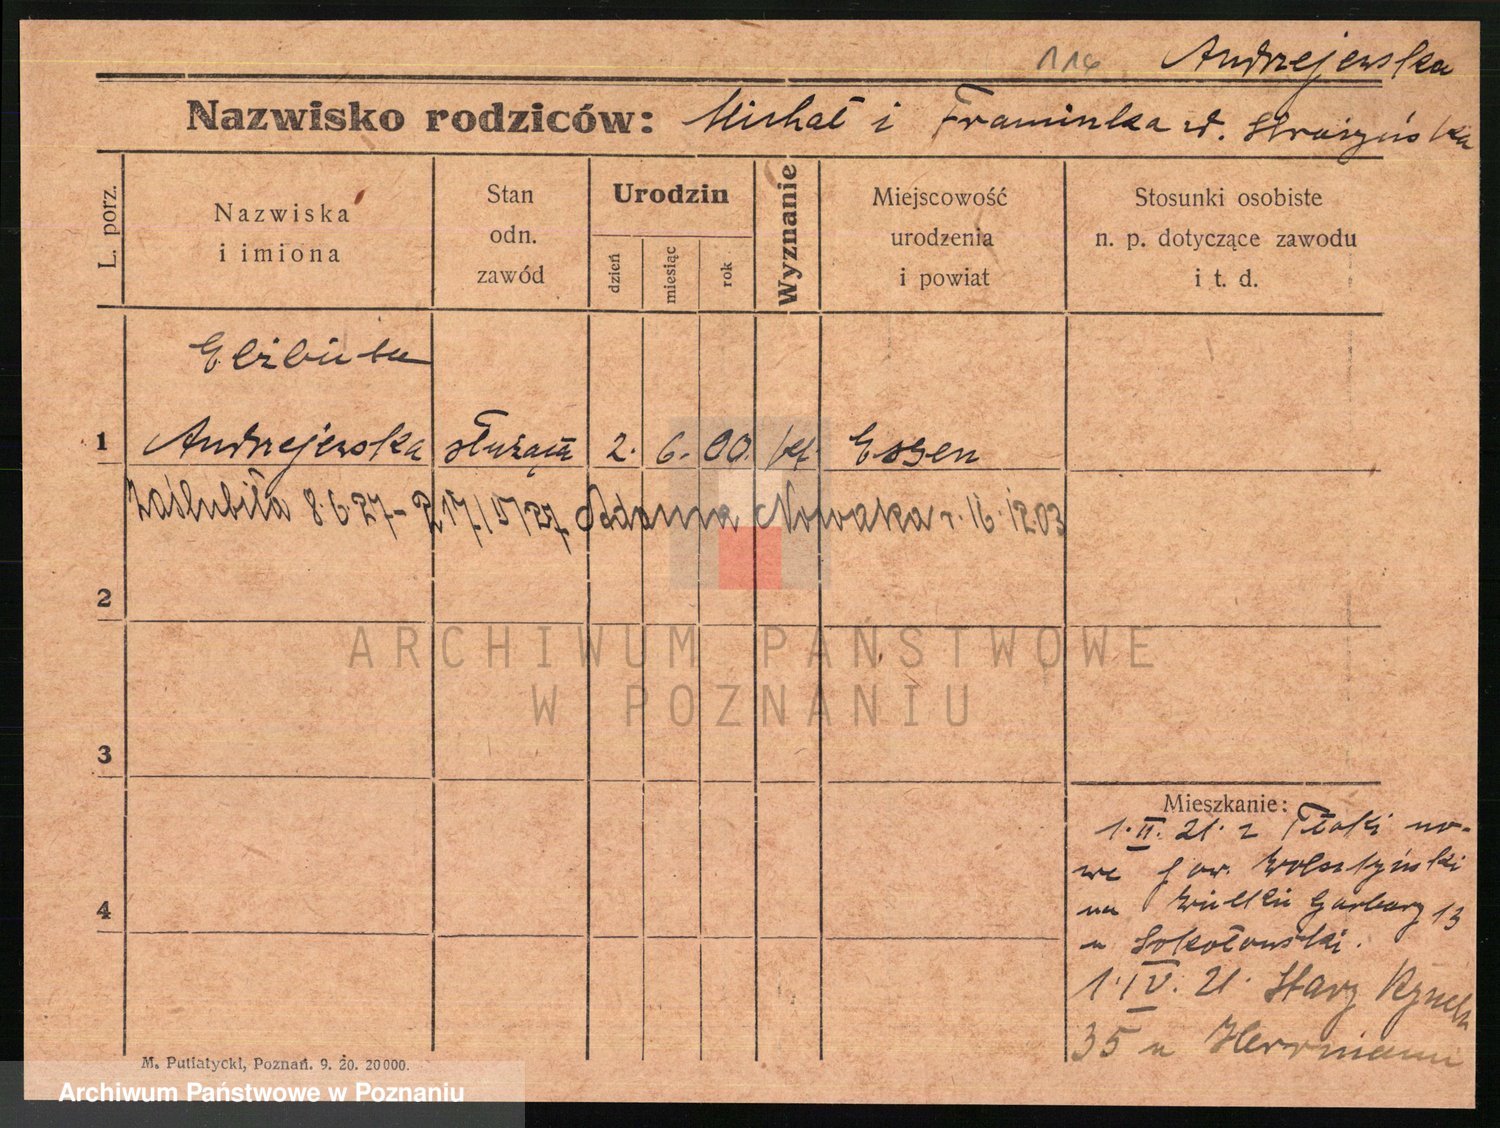 114 Andrzejewska
Nazwisko rodziców: Michał i Franciszka d.
L. porz.
Nazwiska
i imiona
Stan
odn.
zawód
Urodzin
dzień
miesiąc
rok
Wyznanie
Miejscowość
urodzenia
i powiat
Stosunki osobiste
n. p. dotyczące zawodu
i t. d.
Elżbieta
1 Andrzejewska służąca 2. 6. 00. kt. Essen
Zaślubiła 8.6.27 - Nowaka r. 16.12.03
2
ARCHIWUM PAŃSTWOWE
W POZNANIU
3
Mieszkanie:
1.II.21. z Tłoki no-
we pow. Wolsztyński
na Wielkie Garbary 13
u Sokołowski.
4
1.IV.21. Stary Rynek
35 u Herrmann
M. Putiatycki, Poznań. 9. 20. 20000.
Archiwum Państwowe w Poznaniu